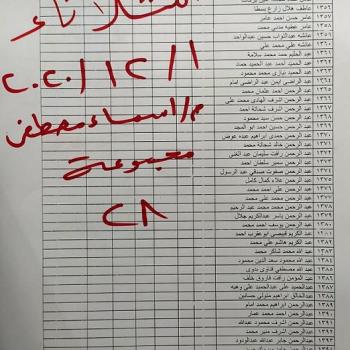 الثلاثاء
٢٠٢٠/١٢/١
م/اسماء مصطفى
مجموعة
٢٨
١٣٥٦ عاطف هلال زارع بسطا
١٣٥٧ عامر حسن احمد عامر
١٣٥٨ عامر عطيه مدني محمد
١٣٥٩ عائشه عبدالتواب حسين عبدالواحد
١٣٦٠ عائشه علي محمد علي
١٣٦١ عبد الحليم حمد محمد سلامة
١٣٦٢ عبد الحميد احمد عبد الحميد حماد
١٣٦٣ عبد الحميد نيازى محمد محمود
١٣٦٤ عبد الراضى ايمن عبد الراضى امام
١٣٦٥ عبد الرحمن احمد عثمان محمد
١٣٦٦ عبد الرحمن اشرف الهادى محمد على
١٣٦٧ عبد الرحمن اشرف شحاتة احمد
١٣٦٨ عبد الرحمن حسن سيد محمود
١٣٦٩ عبد الرحمن حسين احمد ابو المجد
١٣٧٠ عبد الرحمن حمدى ابراهيم عبده عوض
١٣٧١ عبد الرحمن خالد شحاتة محمد
١٣٧٢ عبد الرحمن رافت سليمان عبد الغنى
١٣٧٣ عبد الرحمن سمير سلطان احمد
١٣٧٤ عبد الرحمن صفوت صدقى عبد الرسول
١٣٧٥ عبد الرحمن علاء كمال كامل
١٣٧٦ عبد الرحمن علي احمد محمد
١٣٧٧ عبد الرحمن محمد على محمد
١٣٧٨ عبد الرحمن محمد محمد عبد الرحيم
١٣٧٩ عبد الرحمن ياسر عبدالكريم جلال
١٣٨٠ عبد الرحمن يوسف احمد محمد
عبد الكريم قبيصى ابوعقرب احمد
عبد الكريم هاشم علي محمد
عبد الله محمد شاكر محمد
١٣٨٤ عبد الله محمود سعد الدين محمود
١٣٨٥ عبد الله مصطفى فناوى بدوى
١٣٨٦ عبد المؤمن رافت فاروق خلف
١٣٨٧ عبدالحميد على عبدالحميد على وهبه
١٣٨٨ عبدالخالق ابراهيم متولى حسانين
١٣٨٩ عبدالرحمن ابراهيم محمد ابراهيم
١٣٩٠ عبدالرحمن احمد محمد عمار
١٣٩١ عبدالرحمن اشرف محمود عبدالله
١٣٩٢ عبدالرحمن اشرف منير محمد
عبدالرحمن جابر عبدالله عبدالودود